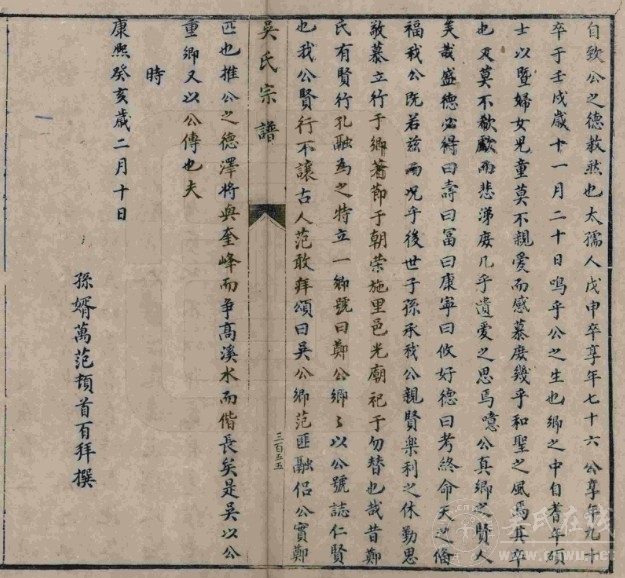 自致公之德教然也太孺人戊申卒享年七十六公享年九十
卒于壬戌歲十一月二十日嗚乎公之生也鄉之中自耆年碩
士以暨婦女兒童莫不親愛而感慕庶幾乎和聖之風焉其卒
也又莫不欷歔而悲涕庶几乎遺愛之思焉噫公真鄉之賢人
美哉盛德必得曰壽曰冨曰康寧曰攸好德曰考終命天之脩
福我公既若兹而况乎後世子孫承我公親賢樂利之休勤思
敬慕立行于鄉著節于朝荣施里邑光廟祀于勿替也哉昔鄭
氏有賢行孔融為之特立一鄉號曰鄭公鄉〻以公號誌仁賢
也我公賢行不讓古人范敢拜頌曰吳公鄉范匪融侣公實鄭
吳氏宗譜
三百五五
匹也推公之德澤将與奎峰而争高溪水而偕長矣是吴以公
重鄉又以公傳也夫
時
康熙癸亥歲二月十日
孫婿萬范頓首百拜撰
吴氏在线
www.wu.net